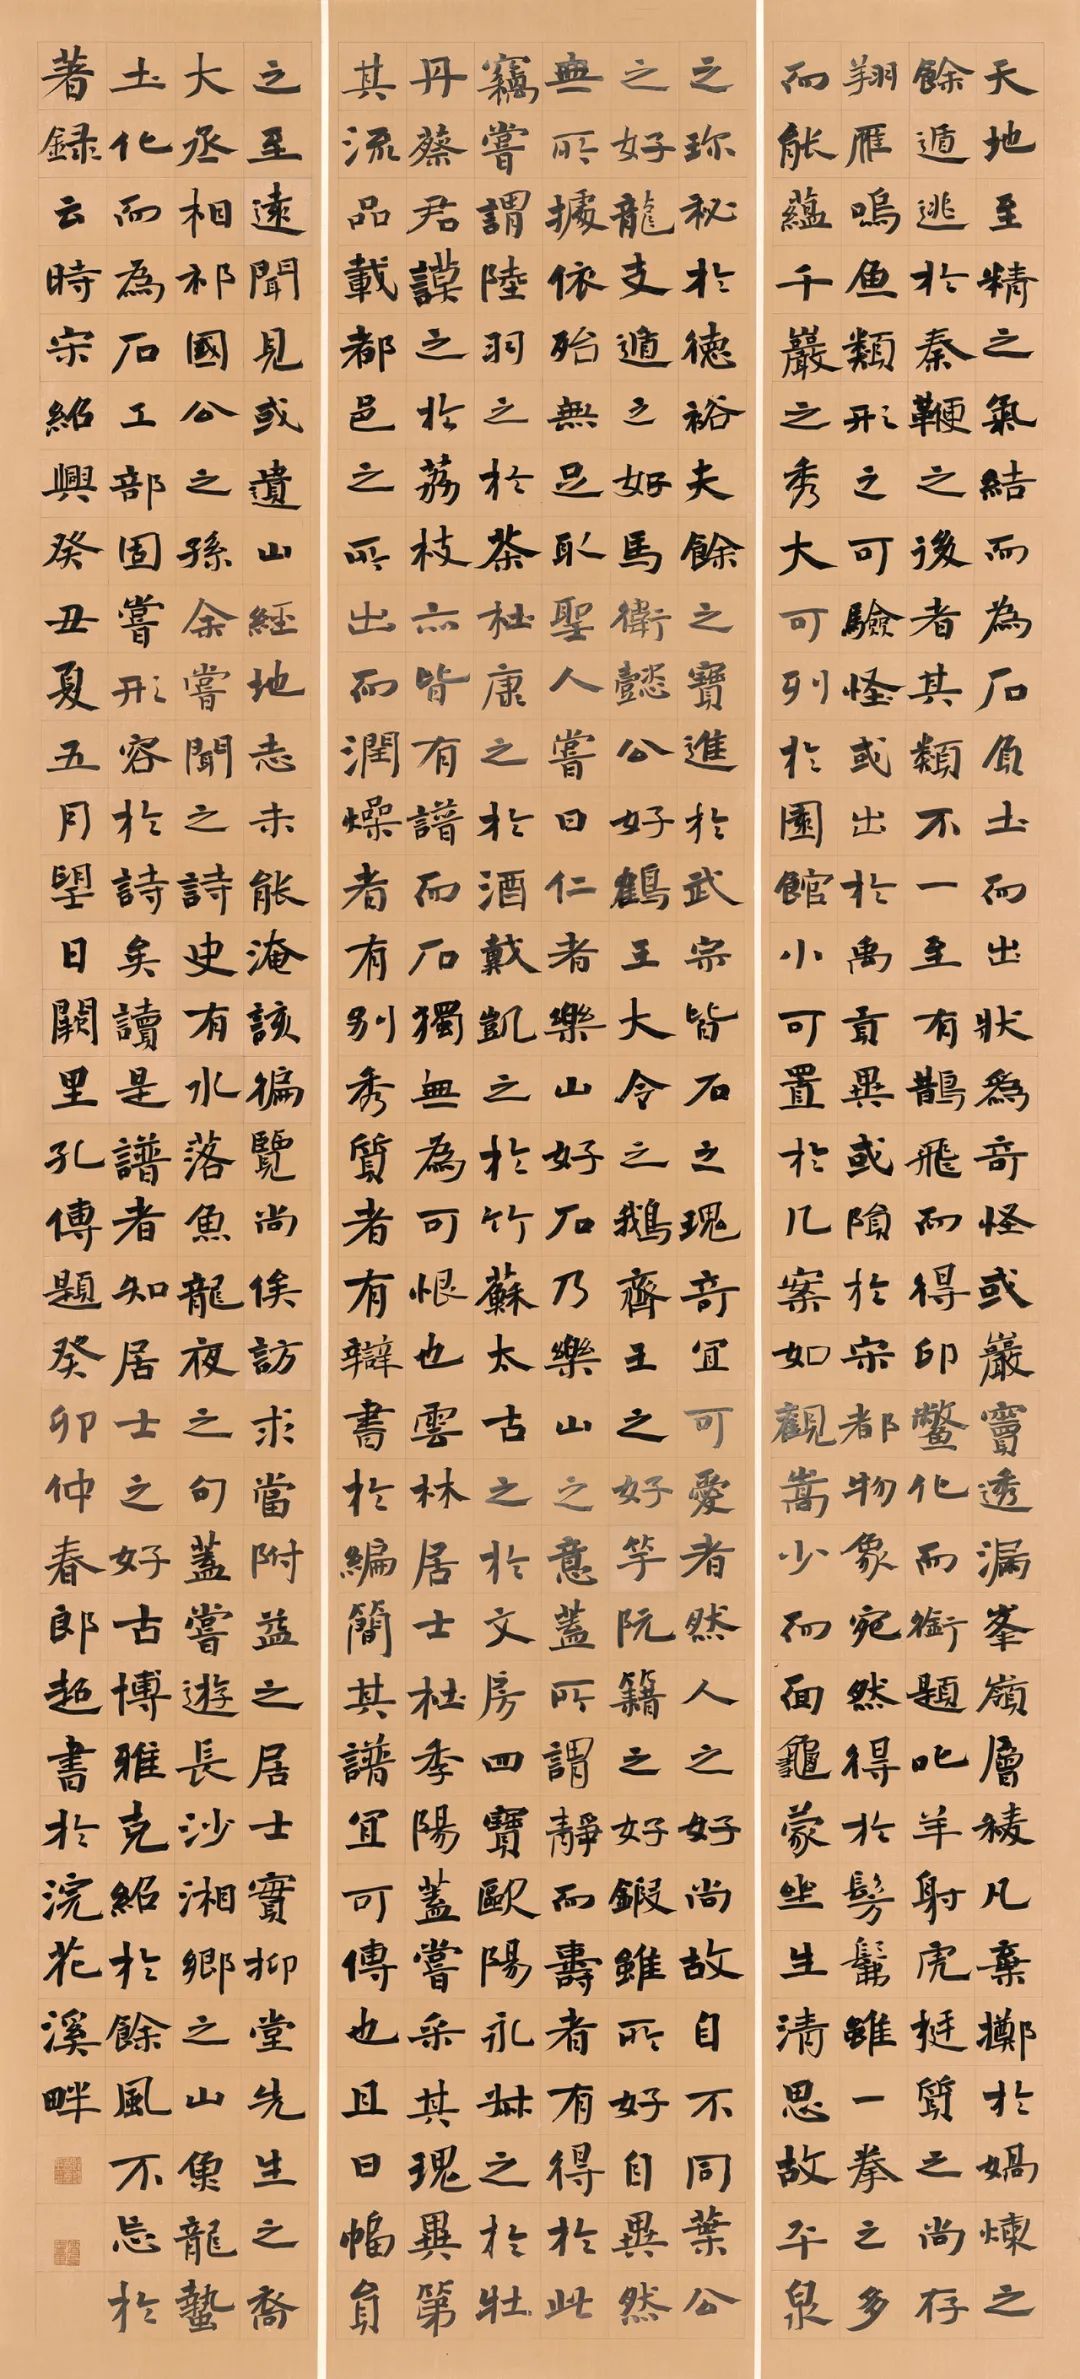 天地至精之氣結而為石負土而出狀為奇怪或巖竇透漏峯嶺層稜凡棄擲於媧煉之
餘遁逃於秦鞭之後者其類不一至有鵲飛而得印鼈化而銜題叱羊射虎挺質之尚存
翔雁鳴魚類形之可驗怪或出於禹貢異或隕於宋都物象宛然得於髣髴雖一拳之多
而能蘊千巖之秀大可列於園館小可置於几案如觀嵩少而面龜蒙坐生清思故平泉
之珍秘於德裕夫餘之寶進於武宗皆石之瑰奇宜可愛者然人之好尚故自不同葉公
之好龍支遁之好馬衛懿公好鶴王大令之鵝齊王之好竽阮籍之好鍛雖所好自異然
無所據依殆無足取聖人嘗曰仁者樂山好石乃樂山之意蓋所謂靜而壽者有得於此
竊嘗謂陸羽之於茶杜康之於酒戴凱之於竹蘇太古之於文房四寶歐陽永叔之於牡
丹蔡君謨之於荔枝亦皆有譜而石獨無為可恨也雲林居士杜季陽蓋嘗采其瑰異第
其流品載都邑之所出而潤燥者有別秀質者有辯書於編簡其譜宜可傳也且曰幅員
之至遠聞見或遺山經地志未能淹該徧覽尚俟訪求當附益之居士實抑堂先生之裔
大丞相祁國公之孫余嘗聞之詩史有水落魚龍夜之句蓋嘗遊長沙湘鄉之山魚龍蟄
土化而為石工部固嘗形容於詩矣讀是譜者知居士之好古博雅克紹於餘風不忘於
著録云時宋紹興癸丑夏五月望日闕里孔傳題癸卯仲春郎超書於浣花溪畔